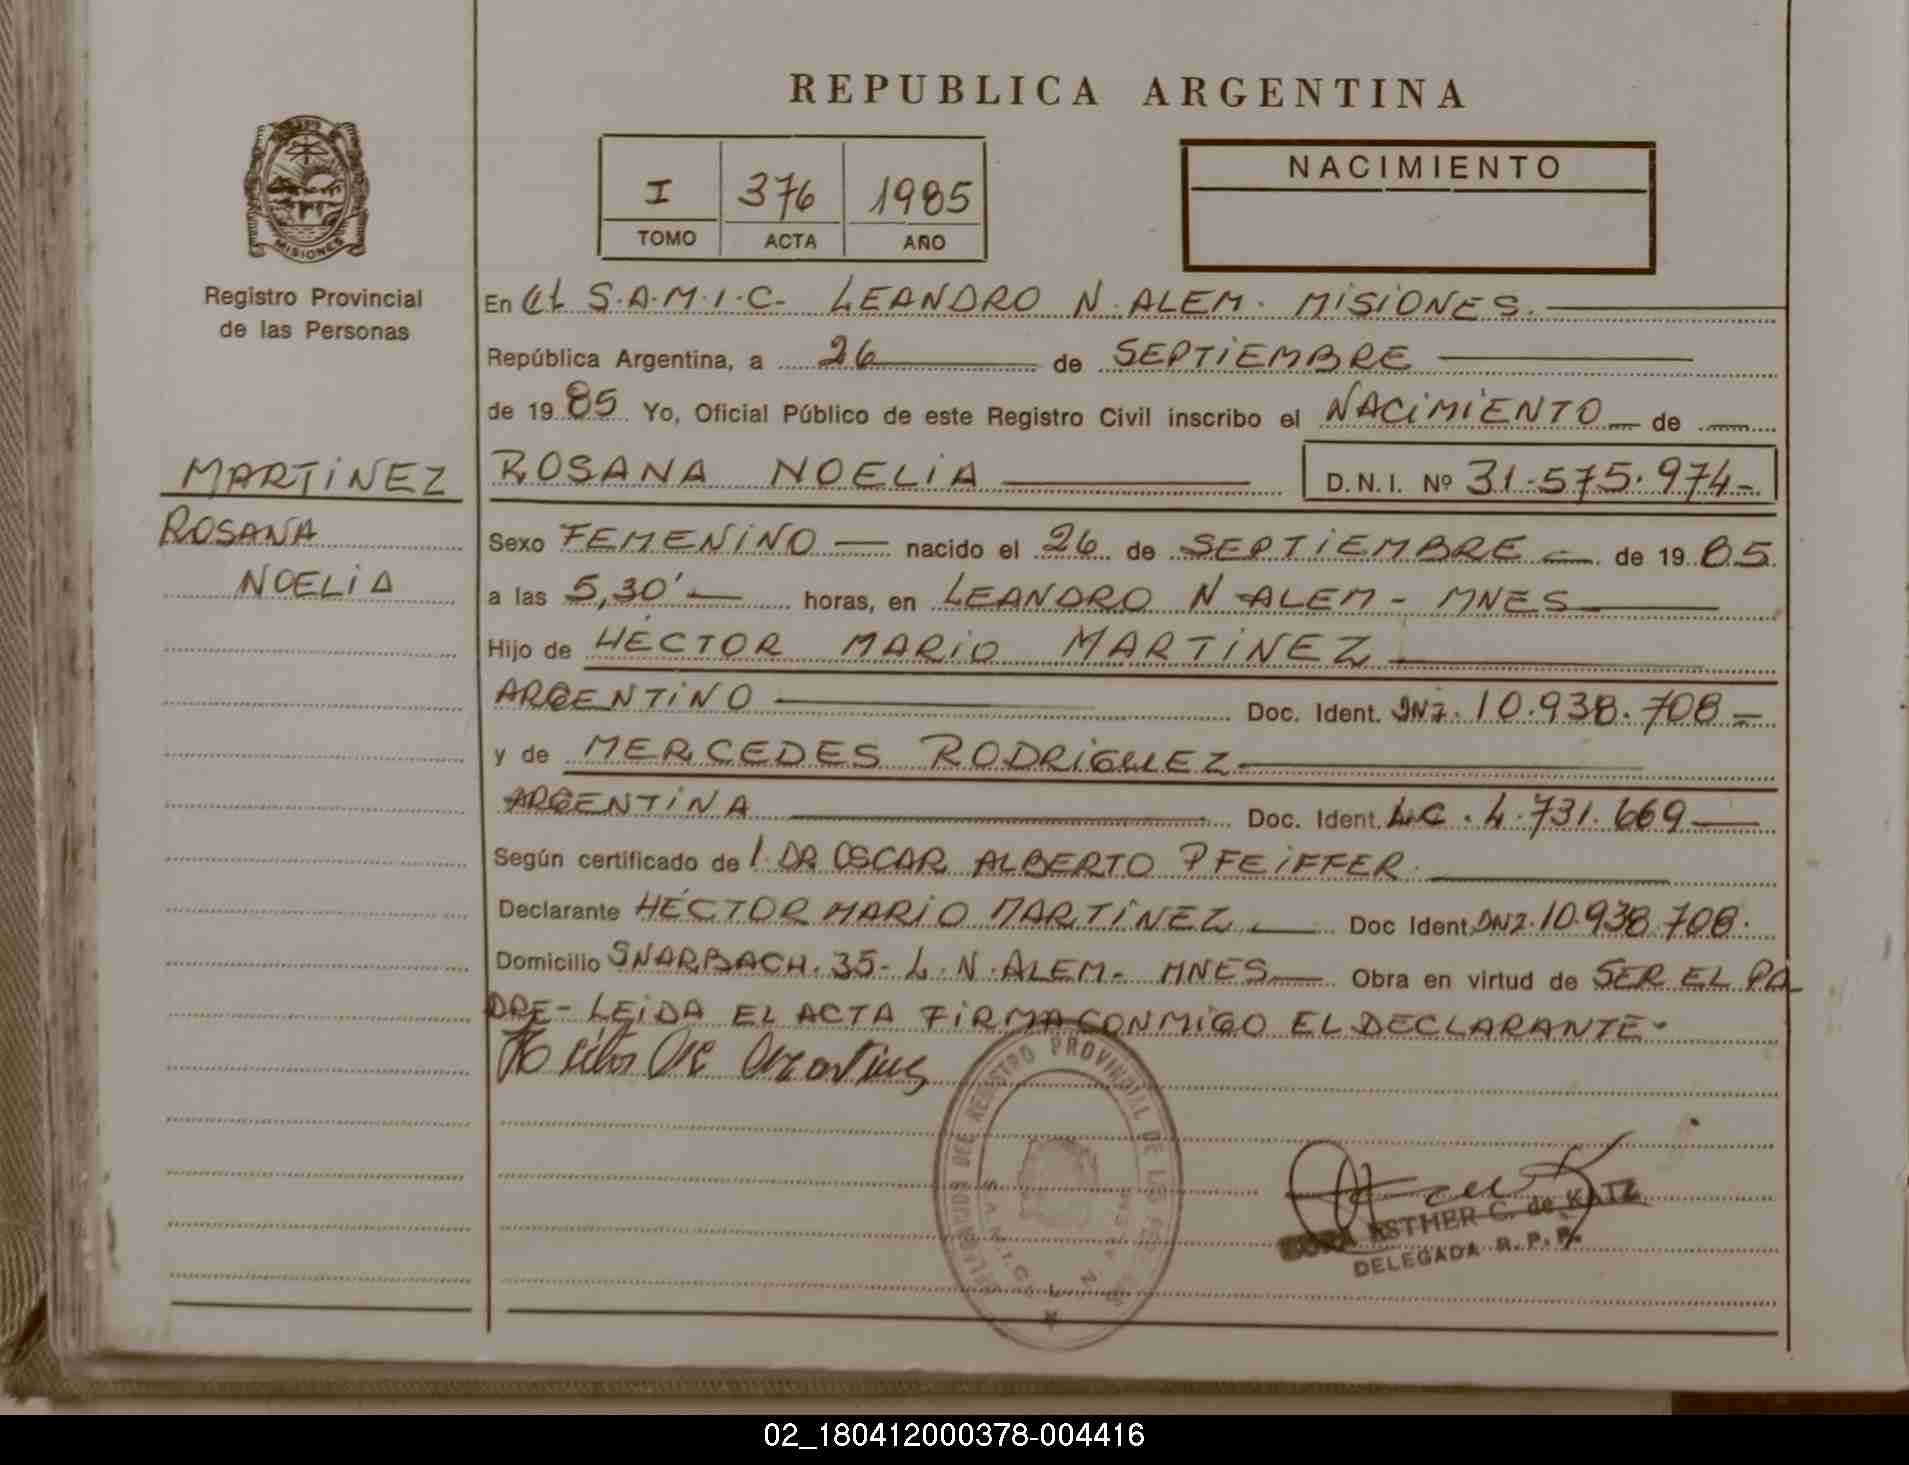 REPUBLICA ARGENTINA
I 376 1985
TOMO ACTA AÑO
NACIMIENTO
MISIONES
Registro Provincial
de las Personas
MARTINEZ
ROSANA
NOELIA
En el S.A.M.I.C. LEANDRO N. ALEM. MISIONES.
República Argentina, a 26 de SEPTIEMBRE
de 1985 Yo, Oficial Público de este Registro Civil inscribo el NACIMIENTO de
ROSANA NOELIA D.N.I. Nº 31.575.974-
Sexo FEMENINO nacido el 26 de SEPTIEMBRE de 1985.
a las 5,30' horas, en LEANDRO N. ALEM - MNES
Hijo de HÉCTOR MARIO MARTINEZ
ARGENTINO Doc. Ident. DNI. 10.938.708-
y de MERCEDES RODRIGUEZ
ARGENTINA Doc. Ident. L.C. 4.731.669
Según certificado de l. DR OSCAR ALBERTO PFEIFFER.
Declarante HÉCTOR MARIO MARTINEZ Doc Ident. DNI. 10.938.708.
Domicilio SNARBACH. 35- L. N. ALEM- MNES Obra en virtud de SER EL PA
DRE- LEIDA EL ACTA FIRMA CONMIGO EL DECLARANTE-
REGISTRO PROVINCIAL DE LAS
S.A.M.I.C. L. N.
ESTHER C. de KATZ
DELEGADA R.P.P.
02_180412000378-004416